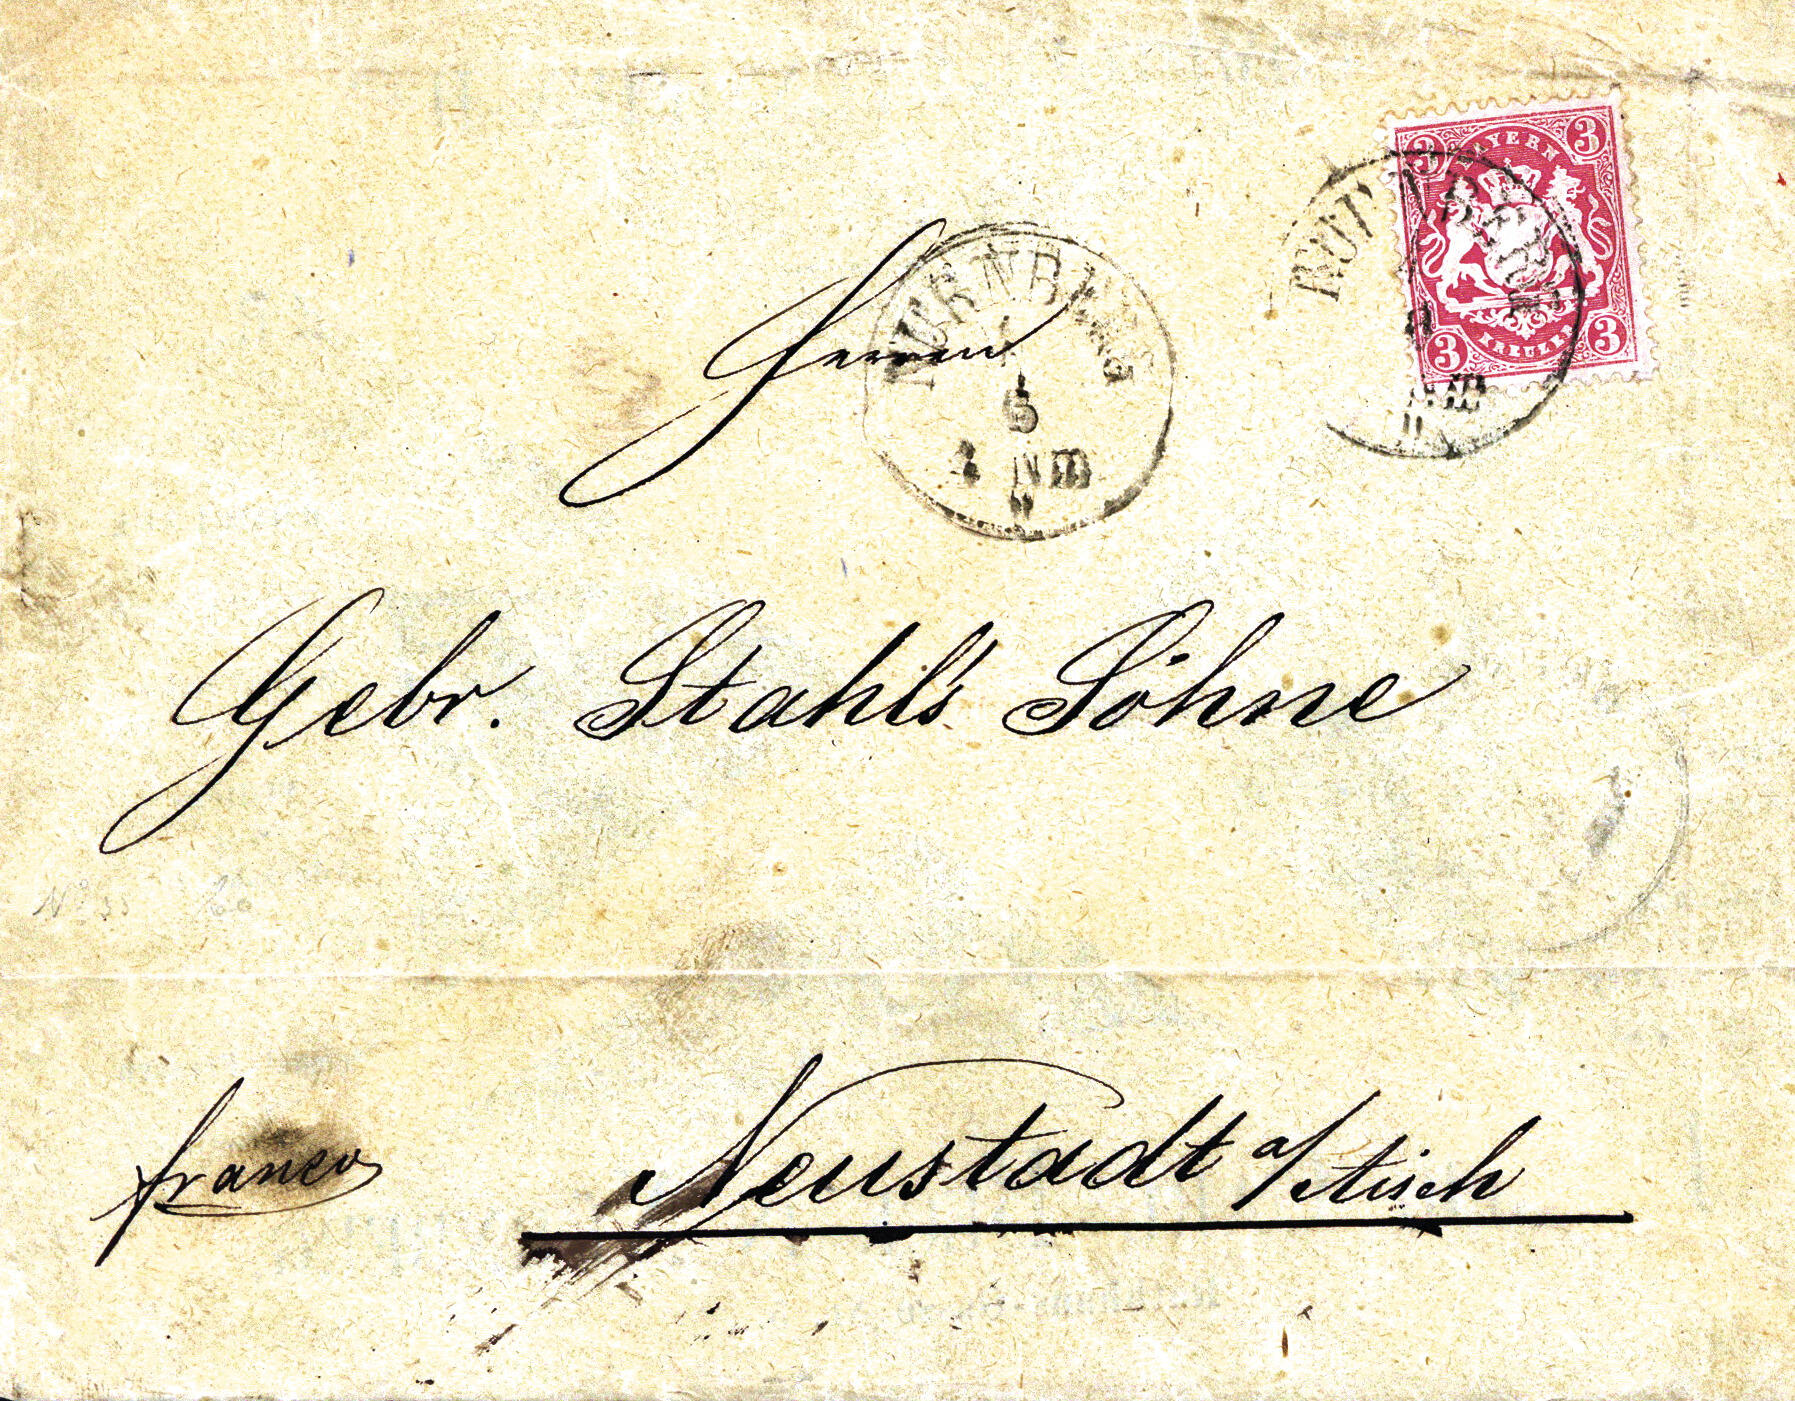 BAYERN
3 3
3 3
KREUZER
NÜRNBERG
NÜRNBERG
6
Nm
Herren
Gebr. Stahl's Söhne
franco
Neustadt a/Aisch